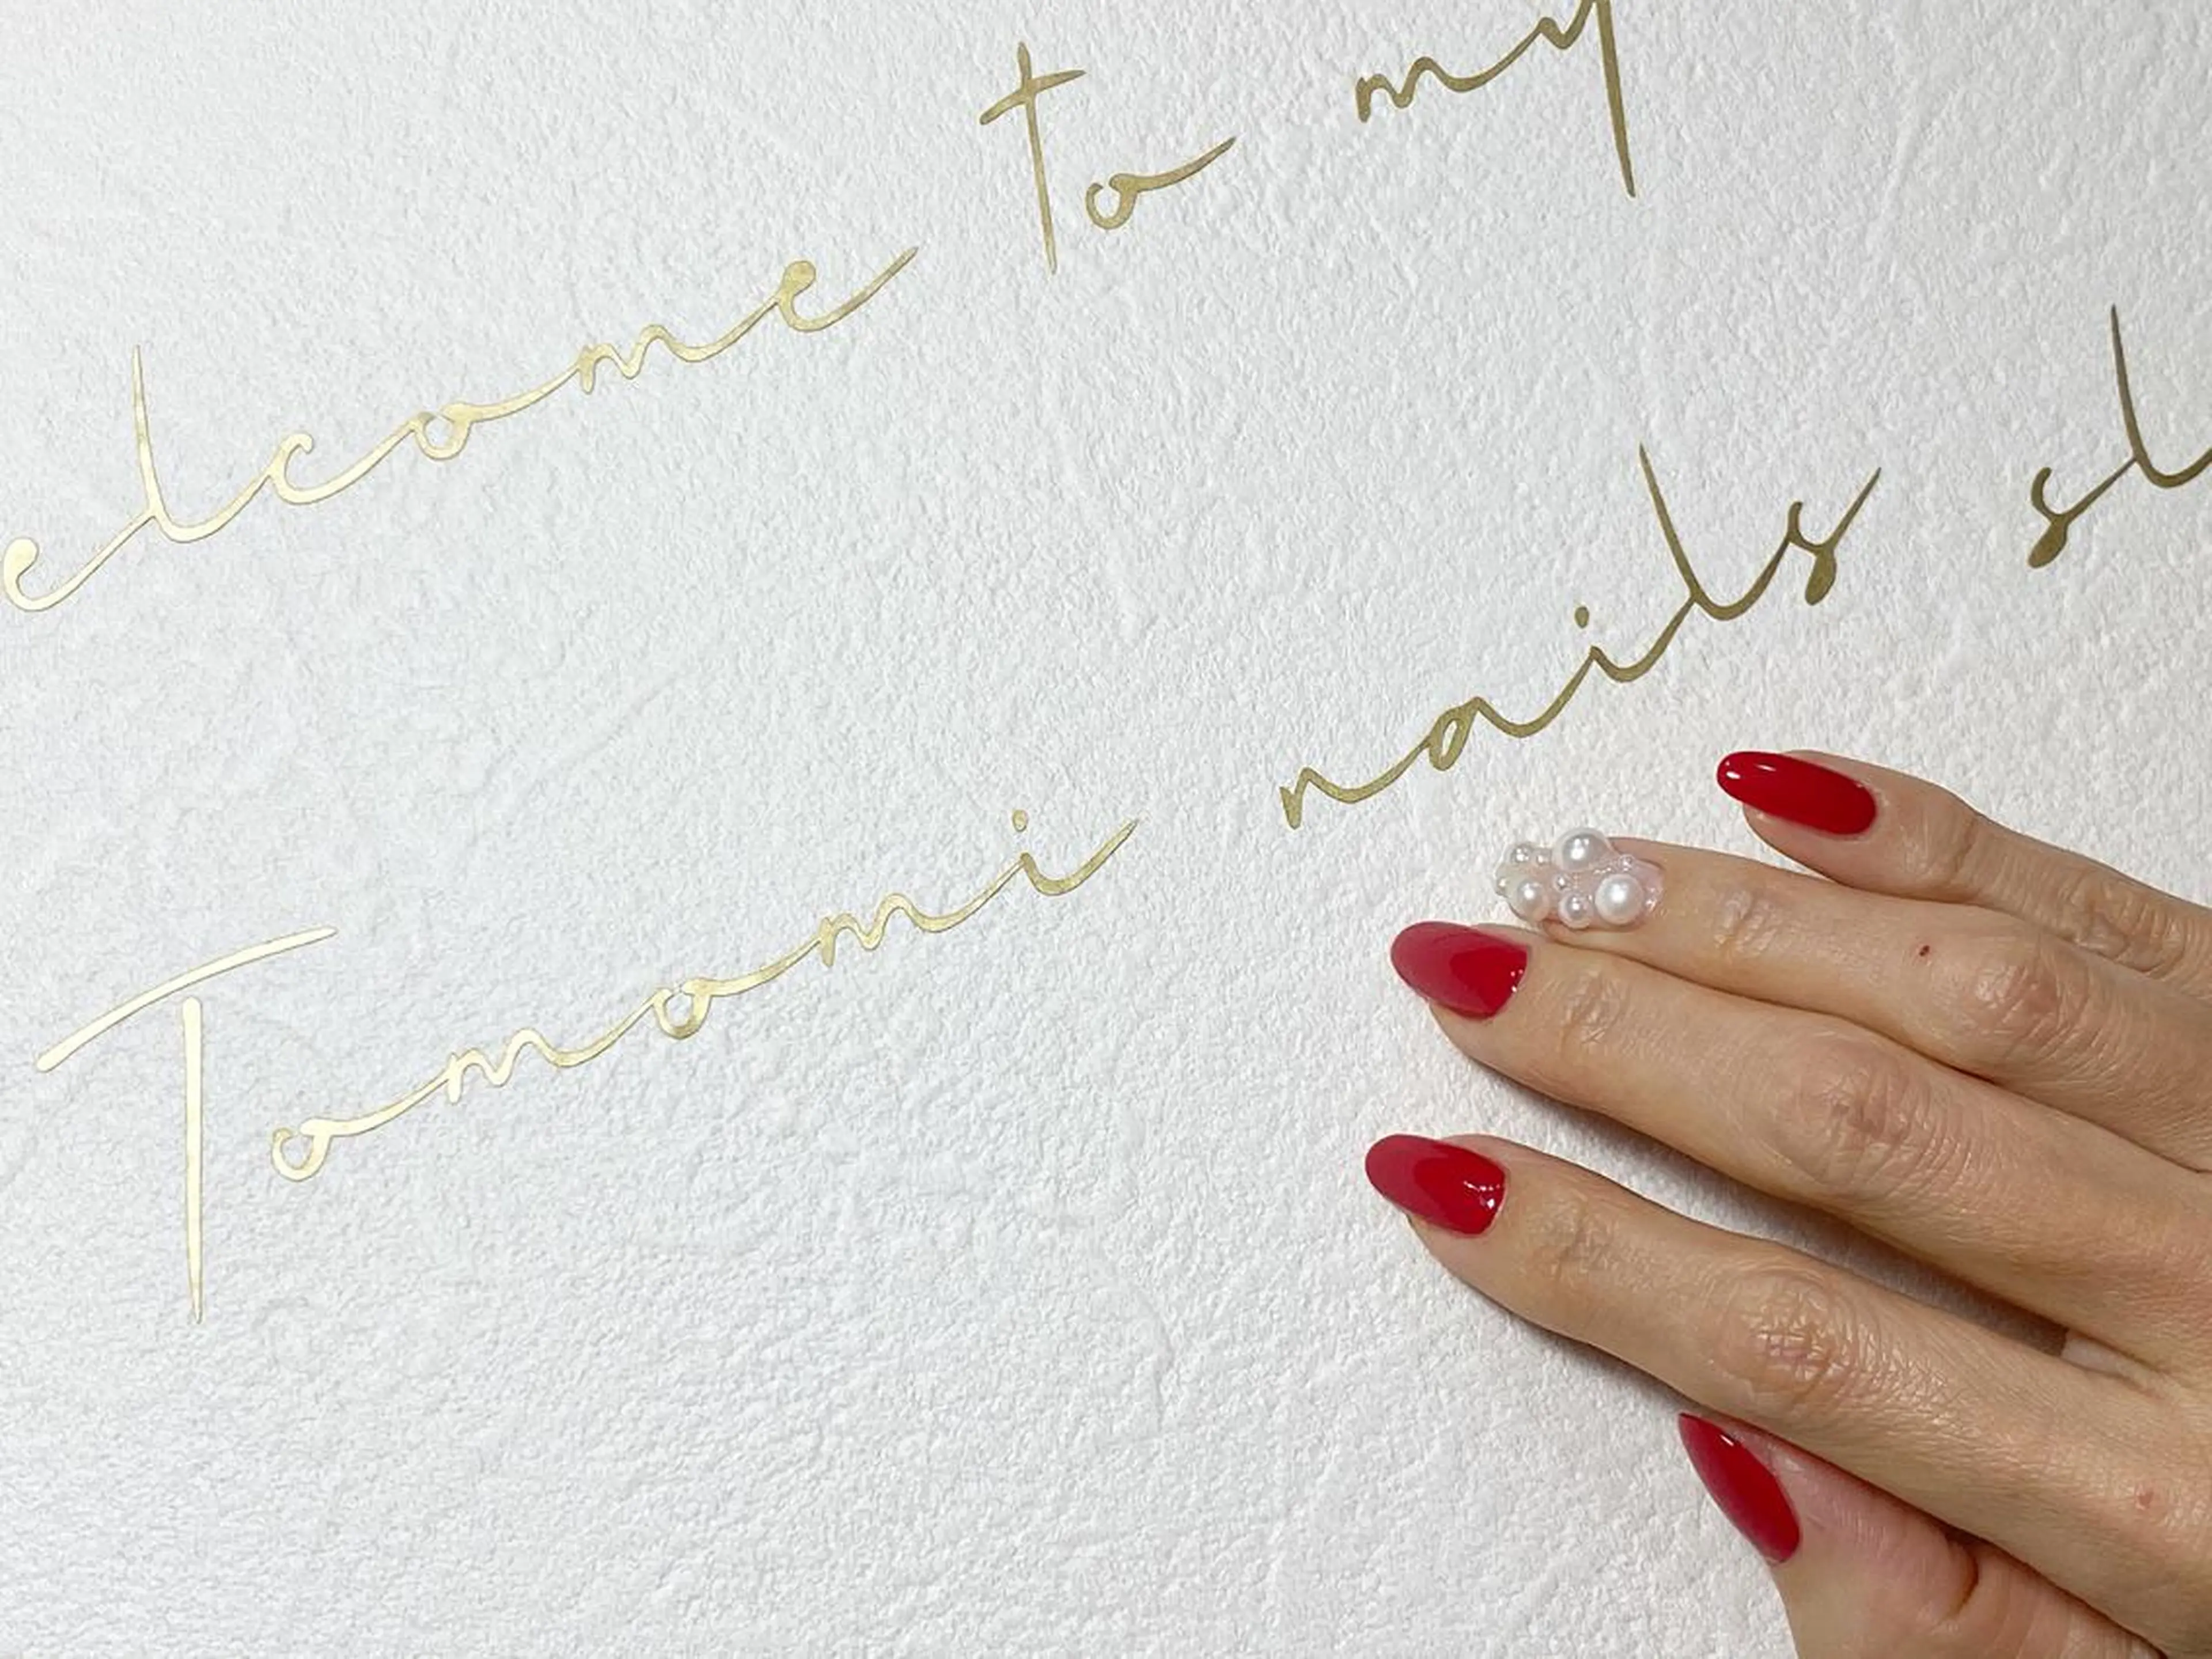 elcome to my
Tomomi nails sl